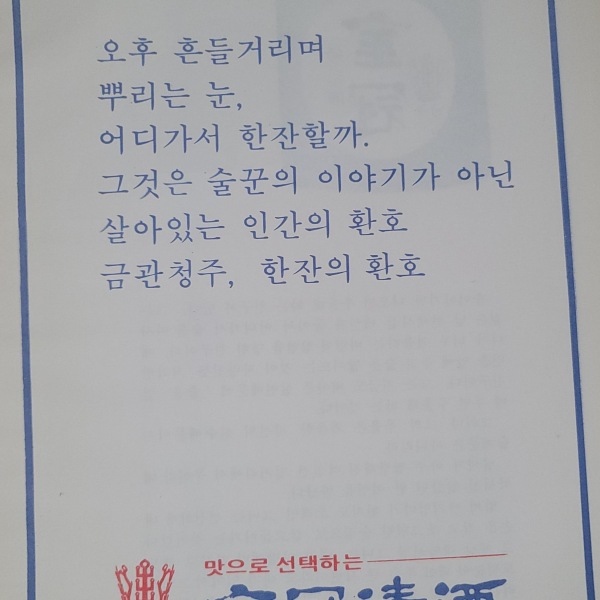 오후 흔들거리며
뿌리는 눈,
어디가서 한잔할까.
그것은 술꾼의 이야기가 아닌
살아있는 인간의 환호
금관청주, 한잔의 환호
맛으로 선택하는